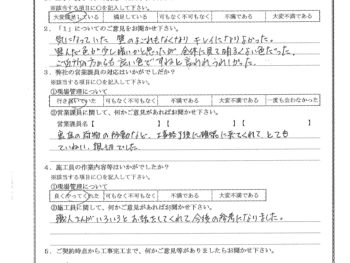 ※該当する項目に○を記入して下さい。
大変満足している 満足している 可もなく不可もなく 不満である 大変不満である
2．「1」についてのご意見をお聞かせ下さい。
気になっていた 壁のよごれもなくなり キレイになりよかった。
選んだ色が少し暗いかと思ったが 全体に見て明るくよい色だった。
ご近所の方からも 良い色ですねと言われ うれしかった。
3．弊社の営業議員の対応はいかがでしたか？
※該当する項目に○を記入して下さい。
①現場管理について
行き届いていた 可もなく不可もなく 不満である 大変不満である 一度も会わなかった
②営業議員に関して、何かご意見等がありましたらお聞かせ下さい。
営業議員名【 】 【 】 【 】
の荷物の移動など、工事終了後に確認に来てくれて とても
ていねい、親切でした。
4．施工員の作業内容等はいかがでしたか？
※該当する項目に○を記入して下さい。
①現場管理について
良くやってくれた 可もなく不可もなく 不満である 大変不満である
②施工員に関して、何かご意見等がありましたらお聞かせ下さい。
職人さんがいろいろと お話をしてくれて 今後の参考になりました。
5．ご契約時点から工事完工まで、何かご意見等がありましたらお聞かせ下さい。